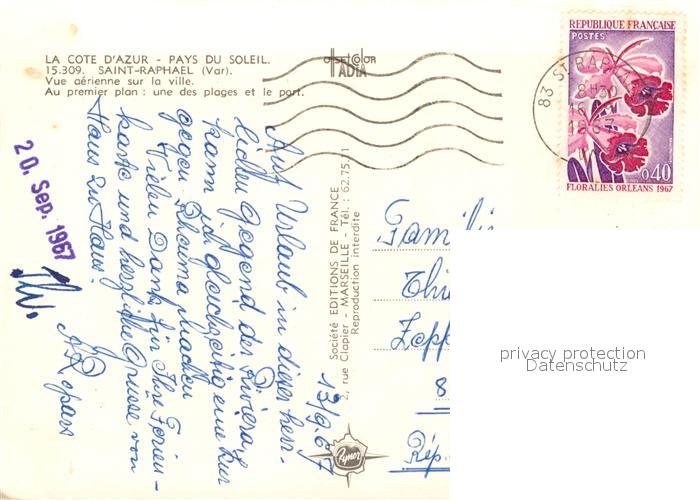 LA COTE D'AZUR - PAYS DU SOLEIL.
15.309. SAINT-RAPHAEL (Var).
Vue aérienne sur la ville.
Au premier plan : une des plages et le port.
OFFSET COLOR
IADIA
REPUBLIQUE FRANÇAISE
POSTES
0,40
FLORALIES ORLEANS 1967
83 ST RAPHAEL
8H30
16
1967
20. Sep. 1967
Société EDITIONS DE FRANCE
2, rue Clapier - MARSEILLE - Tél. : 62.75.11
Reproduction interdite
Rymor
13/9.67
Auf Urlaub in dieser herr-
lichen Gegend der Riviera
kann ich gleichzeitig eine Kur
gegen Rheuma machen
Vielen Dank für Ihre Ferien-
karte und herzliche Grüsse von
Haus zu Haus!
Famili
Thi
Zepp
8
Rép.
privacy protection
Datenschutz